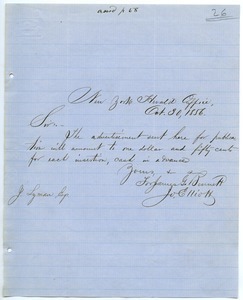 26
New York Herald Office,
Oct. 30, 1856.
Sir,
The advertisement sent here for publica
tion will amount to one dollar and fifty cents
for each insertion, cash in advance
Yours &
For James G Bennett
J. Lyman Esq